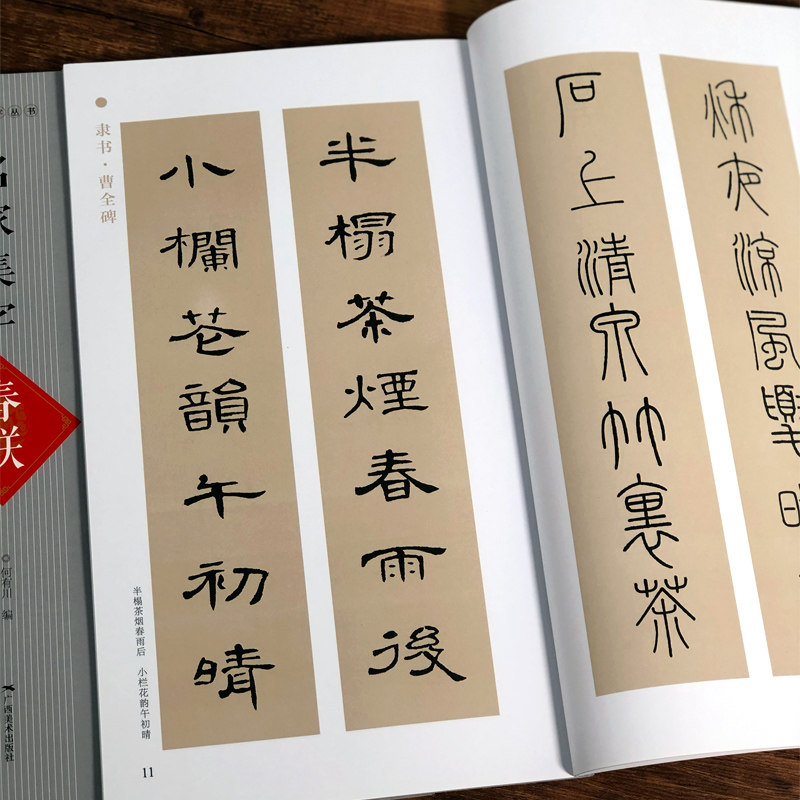 隶书·曹全碑
半榻茶煙春雨後
小欄花韻午初晴
半榻茶烟春雨后 小栏花韵午初晴
11
秋夜涼風夏
石上清泉竹裏茶
丛书
名家集字
春联
◎何有川 编
广西美术出版社